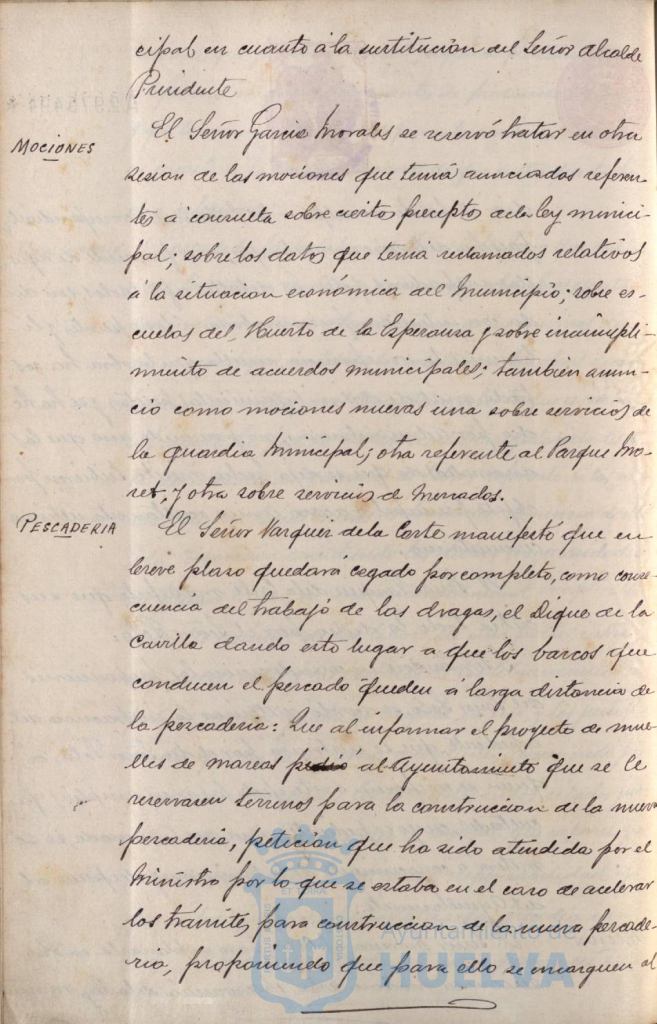 cipal en cuanto á la sustitución del Señor Alcalde
Presidente
MOCIONES
El Señor Garcia Morales se reservó tratar en otra
sesion de las mociones que tenia anunciadas referen-
tes a consulta sobre ciertos preceptos de la ley munici-
pal; sobre los datos que tenia reclamados relativos
á la situacion económica del Municipio; sobre es-
cuelas del Huerto de la Esperanza y sobre incumpli-
miento de acuerdos municipales; tambien anun-
ció como mociones nuevas una sobre servicios de
la guardia Municipal; otra referente al Parque Mo-
ret, y otra sobre servicios de Mercados.
PESCADERIA
El Señor Vazquez de la Corte manifestó que en
breve plazo quedará cegado por completo, como conse-
cuencia del trabajo de las dragas, el Dique de la
Cavilla dando esto lugar a que los barcos que
conducen el pescado queden á larga distancia de
la pescaderia: Que al informar el proyecto de mue-
lles de mareas pidió al Ayuntamiento que se le
reservasen terrenos para la construccion de la nueva
pescaderia, peticion que ha sido atendida por el
Ministro por lo que se estaba en el caso de acelerar
los trámites para construccion de la nueva pescade-
ria, proponiendo que para ello se encarguen al
Ayuntamiento de
HUELVA